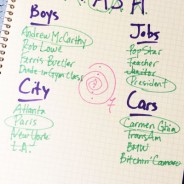 M.A.S.H
Boys
Andrew McCarthy
Rob Lowe
Ferris Bueller
Dude in Gym Class
Jobs
Pop Star
Teacher
Janitor
President
City
Atlanta
Paris
New York
L.A.
Cars
Carmen Ghia
Trans Am
BMW
Bitchin' Camaro